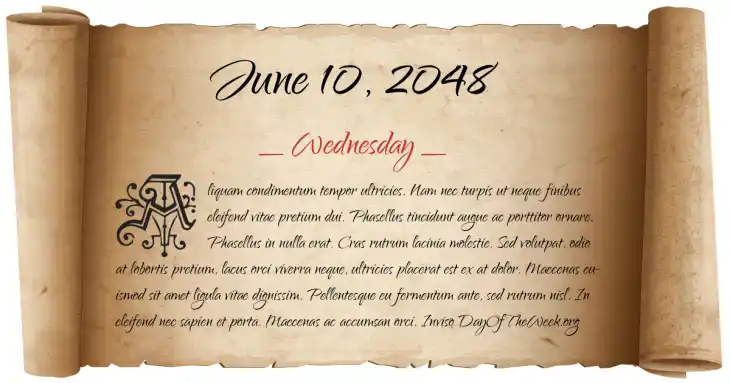 June 10, 2048
— Wednesday —
Aliquam condimentum tempor ultricies. Nam nec turpis ut neque finibus
eleifend vitae pretium dui. Phasellus tincidunt augue ac porttitor ornare.
Phasellus in nulla erat. Cras rutrum lacinia molestie. Sed volutpat, odio
at lobortis pretium, lacus orci viverra neque, ultricies placerat est ex at dolor. Maecenas eu-
ismod sit amet ligula vitae dignissim. Pellentesque eu fermentum ante, sed rutrum nisl. In
eleifend nec sapien et porta. Maecenas ac accumsan orci. Inviso DayOfTheWeek.org